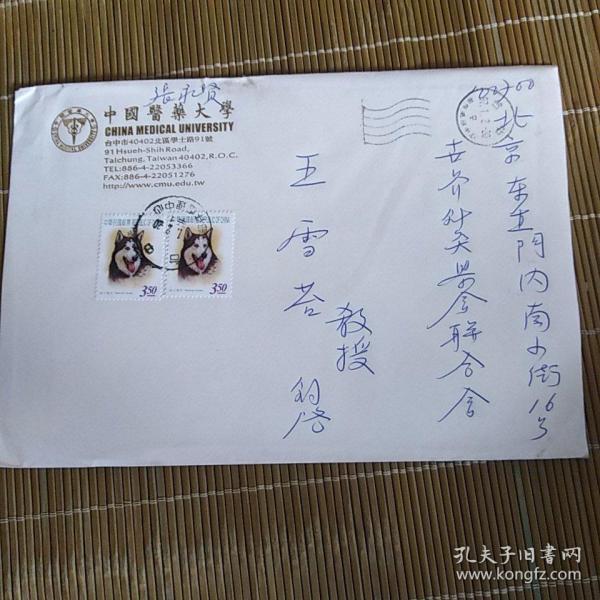 張永賢
中國醫藥大學
CHINA MEDICAL UNIVERSITY
台中市40402北區學士路91號
91 Hsueh-Shih Road,
Taichung, Taiwan 40402, R.O.C.
TEL:886-4-22053366
FAX:886-4-22051276
http://www.cmu.edu.tw
3.50
3.50
100700
北京东直門内南小街16号
世界针灸學会联合会
王雪苔
教授
钧啓
孔夫子旧书网
www.kongfz.com